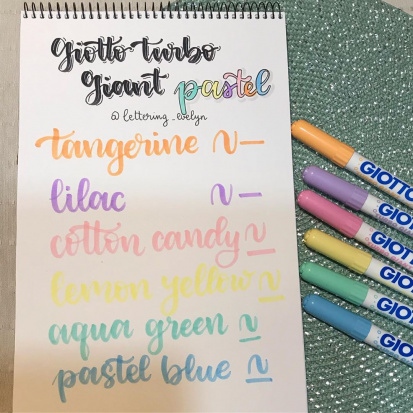 Giotto turbo
Giant pastel
@lettering_evelyn
tangerine
lilac
cotton candy
lemon yellow
aqua green
pastel blue
GIOTTO
GIOTTO
GIOTTO
GIOTTO
GIOTTO
GIOTTO